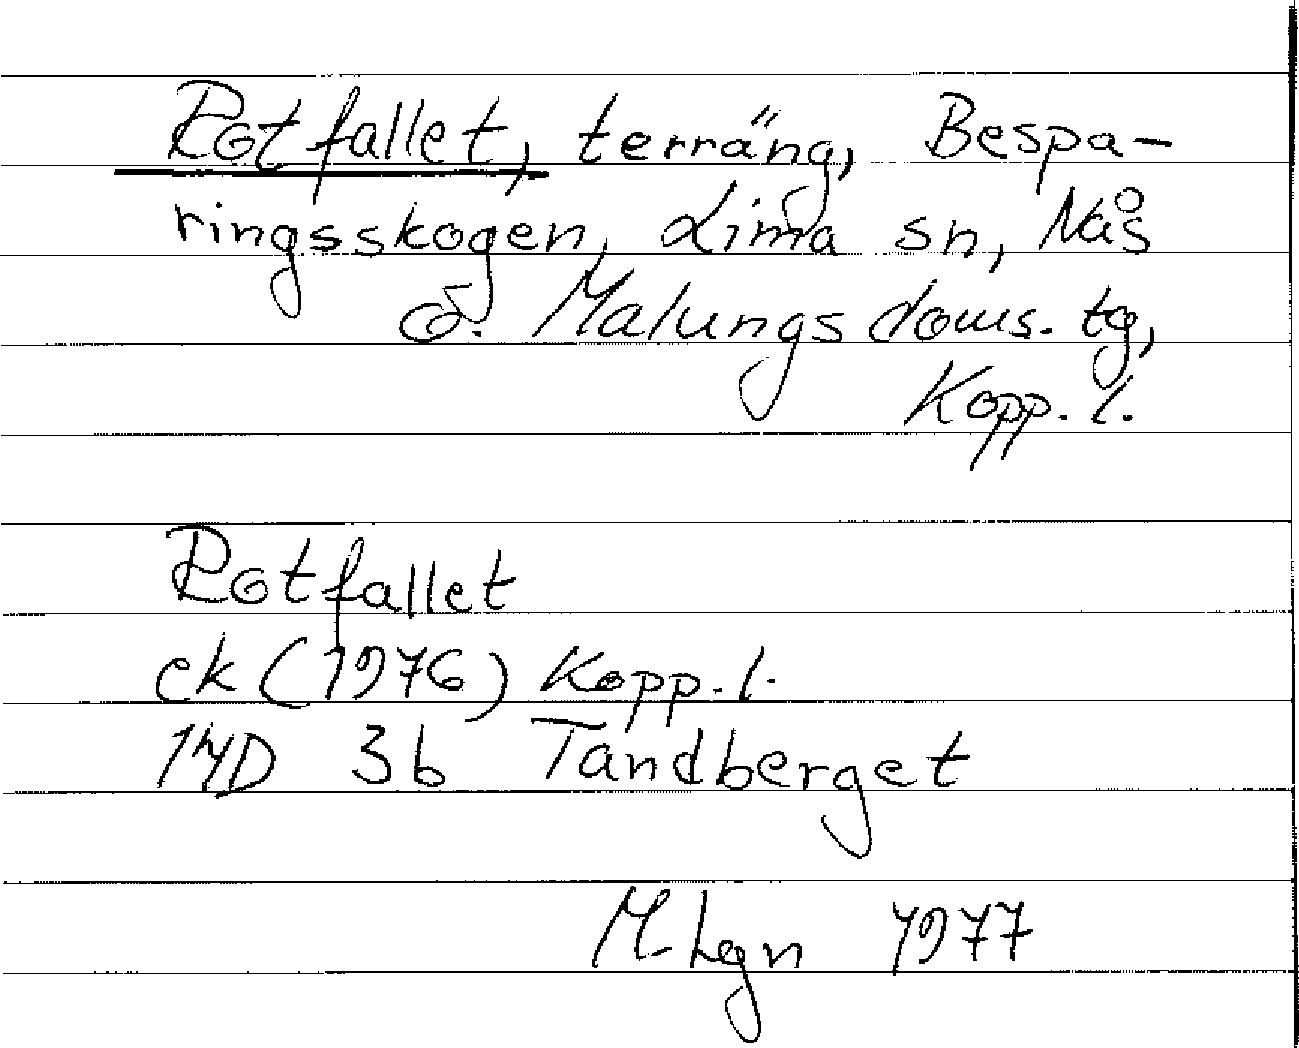 Rotfallet, terräng, Bespa-
ringsskogen, Lima sn, Nås
o. Malungs doms. tg,
Kopp. l.
Rotfallet
ek (1976) Kopp. l.
14D 3b Tandberget
M Lgn 1977